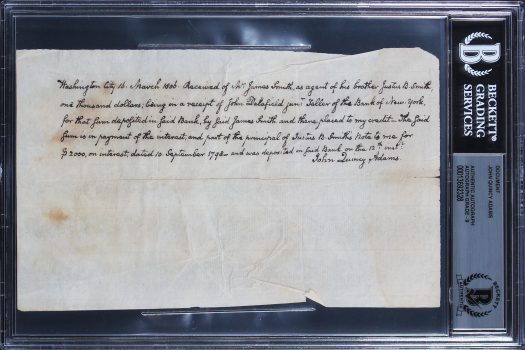 "Washington City 16. March 1806. Received of Mr. James Smith, as agent of his brother Justus B. Smith
one thousand dollars; being in a receipt of John Delafield junr. Teller of the Bank of New York,
for that sum deposited in said Bank, by said James Smith and there placed to my credit — The said
sum is in payment of the interest, and part of the principal of Justus B. Smith's Note to me for
$2000, on interest, dated 10 September 1798 and was deposited in said Bank on the 12th inst.
John Quincy Adams.
BECKETT
GRADING
SERVICES
DOCUMENT
JOHN QUINCY ADAMS
AUTHENTIC AUTOGRAPH
AUTOGRAPH GRADE - 9
BECKETT
AUTHENTIC